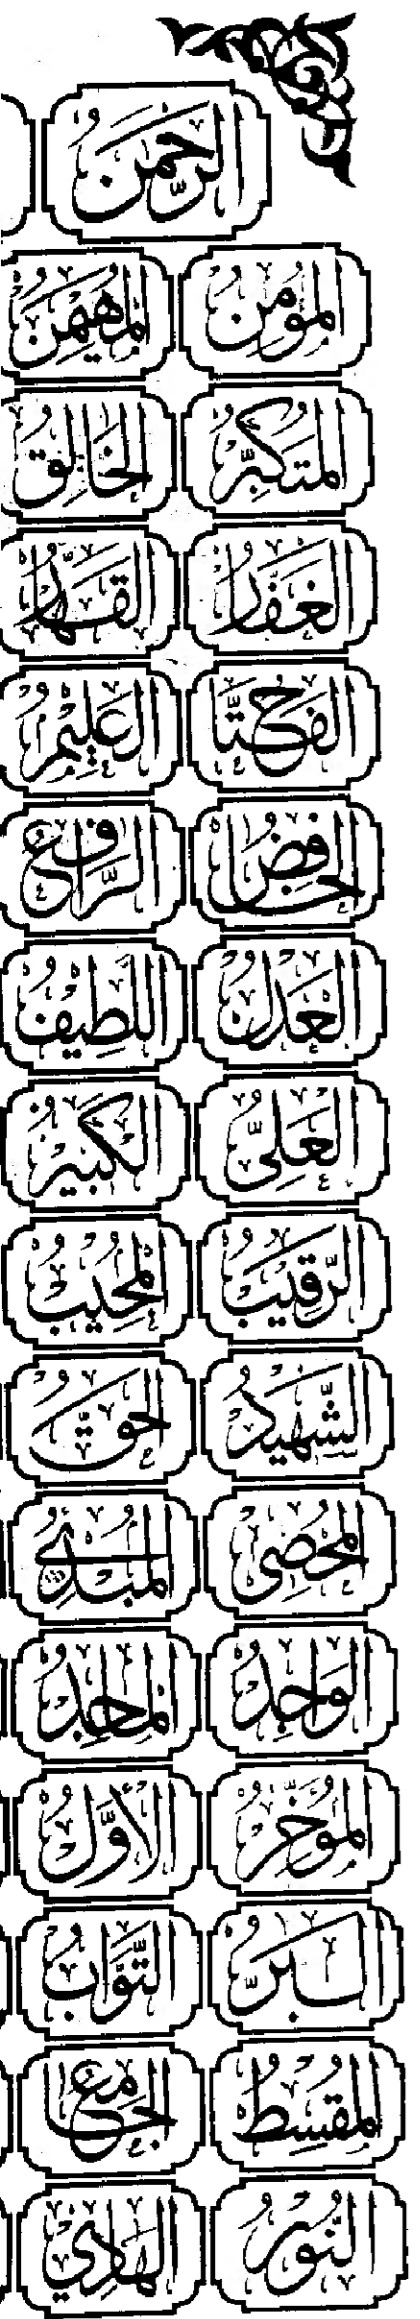 الرَّحْمٰنُ
المُؤْمِنُ المُهَيْمِنُ
المُتَكَبِّرُ الخَالِقُ
الغَفَّارُ القَهَّارُ
الفَتَّاحُ العَلِيمُ
الخَافِضُ الرَّافِعُ
العَدْلُ اللَّطِيفُ
العَلِيُّ الكَبِيرُ
الرَّقِيبُ المُجِيبُ
الشَّهِيدُ الحَقُّ
المُحْصِي المُبْدِئُ
الوَاجِدُ المَاجِدُ
المُؤَخِّرُ الأَوَّلُ
البَرُّ التَّوَّابُ
المُقْسِطُ الجَامِعُ
النُّورُ الهَادِي